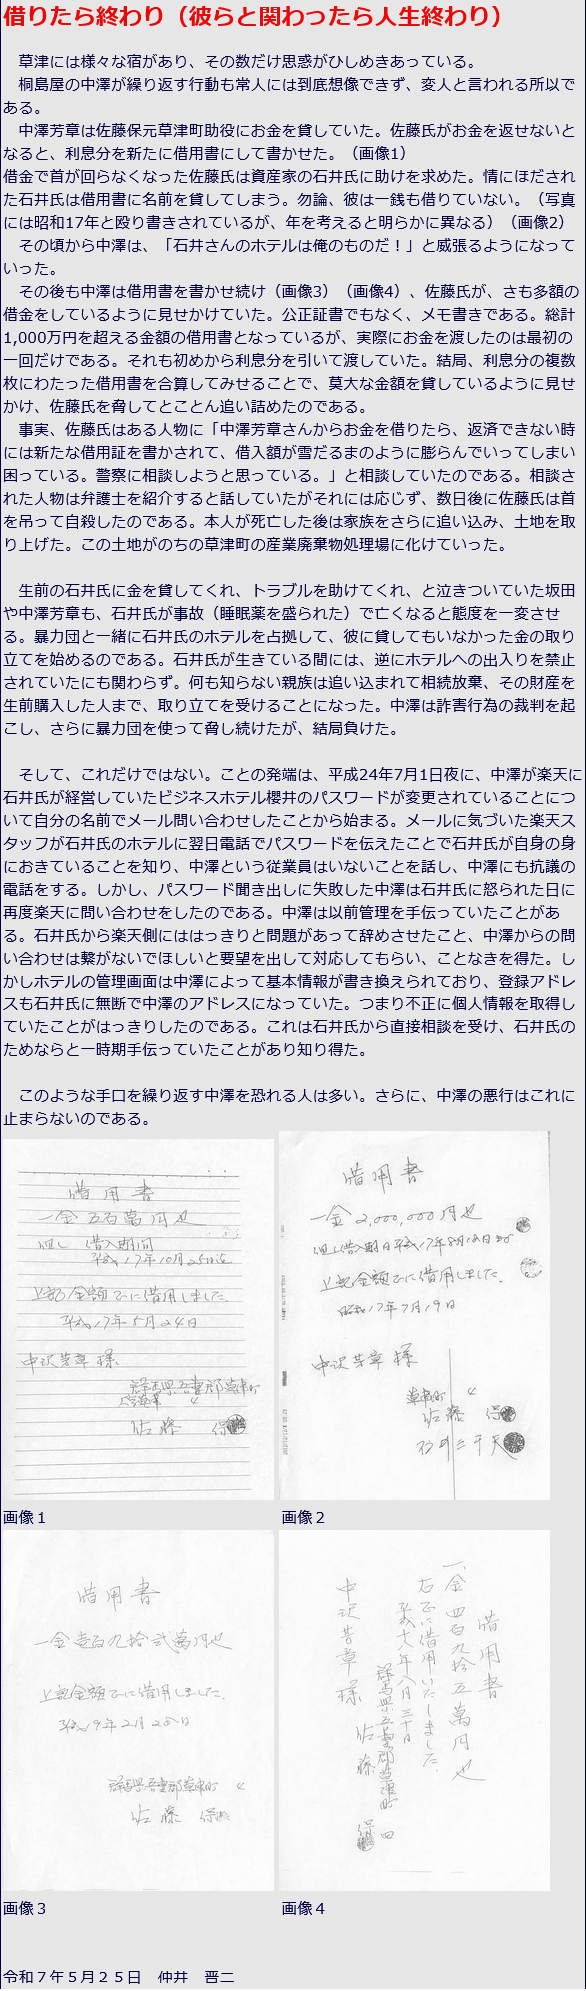 借りたら終わり（彼らと関わったら人生終わり）
　草津には様々な宿があり、その数だけ思惑がひしめきあっている。
　桐島屋の中澤が繰り返す行動も常人には到底想像できず、変人と言われる所以で
ある。
　中澤芳章は佐藤保元草津町助役にお金を貸していた。佐藤氏がお金を返せないと
なると、利息分を新たに借用書にして書かせた。（画像1）
借金で首が回らなくなった佐藤氏は資産家の石井氏に助けを求めた。情にほだされ
た石井氏は借用書に名前を貸してしまう。勿論、彼は一銭も借りていない。（写真
には昭和17年と殴り書きされているが、年を考えると明らかに異なる）（画像2）
　その頃から中澤は、「石井さんのホテルは俺のものだ！」と威張るようになって
いった。
　その後も中澤は借用書を書かせ続け（画像3）（画像4）、佐藤氏が、さも多額の
借金をしているように見せかけていた。公正証書でもなく、メモ書きである。総計
1,000万円を超える金額の借用書となっているが、実際にお金を渡したのは最初の
一回だけである。それも初めから利息分を引いて渡していた。結局、利息分の複数
枚にわたった借用書を合算してみせることで、莫大な金額を貸しているように見せ
かけ、佐藤氏を脅してとことん追い詰めたのである。
　事実、佐藤氏はある人物に「中澤芳章さんからお金を借りたら、返済できない時
には新たな借用証を書かされて、借入額が雪だるまのように膨らんでいってしまい
困っている。警察に相談しようと思っている。」と相談していたのである。相談さ
れた人物は弁護士を紹介すると話していたがそれには応じず、数日後に佐藤氏は首
を吊って自殺したのである。本人が死亡した後は家族をさらに追い込み、土地を取
り上げた。この土地がのちの草津町の産業廃棄物処理場に化けていった。
　生前の石井氏に金を貸してくれ、トラブルを助けてくれ、と泣きついていた坂田
や中澤芳章も、石井氏が事故（睡眠薬を盛られた）で亡くなると態度を一変させ
る。暴力団と一緒に石井氏のホテルを占拠して、彼に貸してもいなかった金の取り
立てを始めるのである。石井氏が生きている間には、逆にホテルへの出入りを禁止
されていたにも関わらず。何も知らない親族は追い込まれて相続放棄、その財産を
生前購入した人まで、取り立てを受けることになった。中澤は詐害行為の裁判を起
こし、さらに暴力団を使って脅し続けたが、結局負けた。
　そして、これだけではない。ことの発端は、平成24年7月1日夜に、中澤が楽天に
石井氏が経営していたビジネスホテル櫻井のパスワードが変更されていることにつ
いて自分の名前でメール問い合わせしたことから始まる。メールに気づいた楽天ス
タッフが石井氏のホテルに翌日電話でパスワードを伝えたことで石井氏が自身の身
におきていることを知り、中澤という従業員はいないことを話し、中澤にも抗議の
電話をする。しかし、パスワード聞き出しに失敗した中澤は石井氏に怒られた日に
再度楽天に問い合わせをしたのである。中澤は以前管理を手伝っていたことがあ
る。石井氏から楽天側にははっきりと問題があって辞めさせたこと、中澤からの問
い合わせは繋がないでほしいと要望を出して対応してもらい、ことなきを得た。し
かしホテルの管理画面は中澤によって基本情報が書き換えられており、登録アドレ
スも石井氏に無断で中澤のアドレスになっていた。つまり不正に個人情報を取得し
ていたことがはっきりしたのである。これは石井氏から直接相談を受け、石井氏の
ためならと一時期手伝っていたことがあり知り得た。
　このような手口を繰り返す中澤を恐れる人は多い。さらに、中澤の悪行はこれに
止まらないのである。
借用書
一金 五百萬円也
但し 借入期間
平成17年10月25日迄
上記金額正に借用しました.
平成17年5月24日
中沢芳章 様
群馬県吾妻郡草津町
佐藤 保
画像１
借用書
一金 2,000,000円也
但し借入期日平成17年8月18日まで
上記金額正に借用しました.
昭和17年7月19日
中沢芳章 様
草津町 4
佐藤 保
石井三千夫
画像２
借用書
一金壱百九拾弐萬円也
上記金額正に借用しました.
平成19年2月25日
群馬県吾妻郡草津町 4
佐藤 保
画像３
借用書
一、金 四百九拾五萬円也
右正に借用いたしました.
平成十八年八月三十日
群馬県吾妻郡草津町 四
佐藤 保
中沢芳章 様
画像４
令和７年５月２５日　仲井　晋二